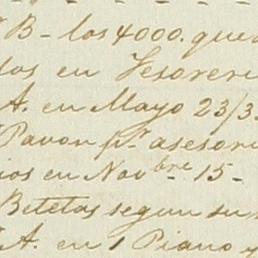 B - los 4000. que
dos en Tesoreri
A. en Mayo 23/3
Pavon pr. asesori
ios en Novbre 15-
Betetas segun su
A. en 1 Piano y